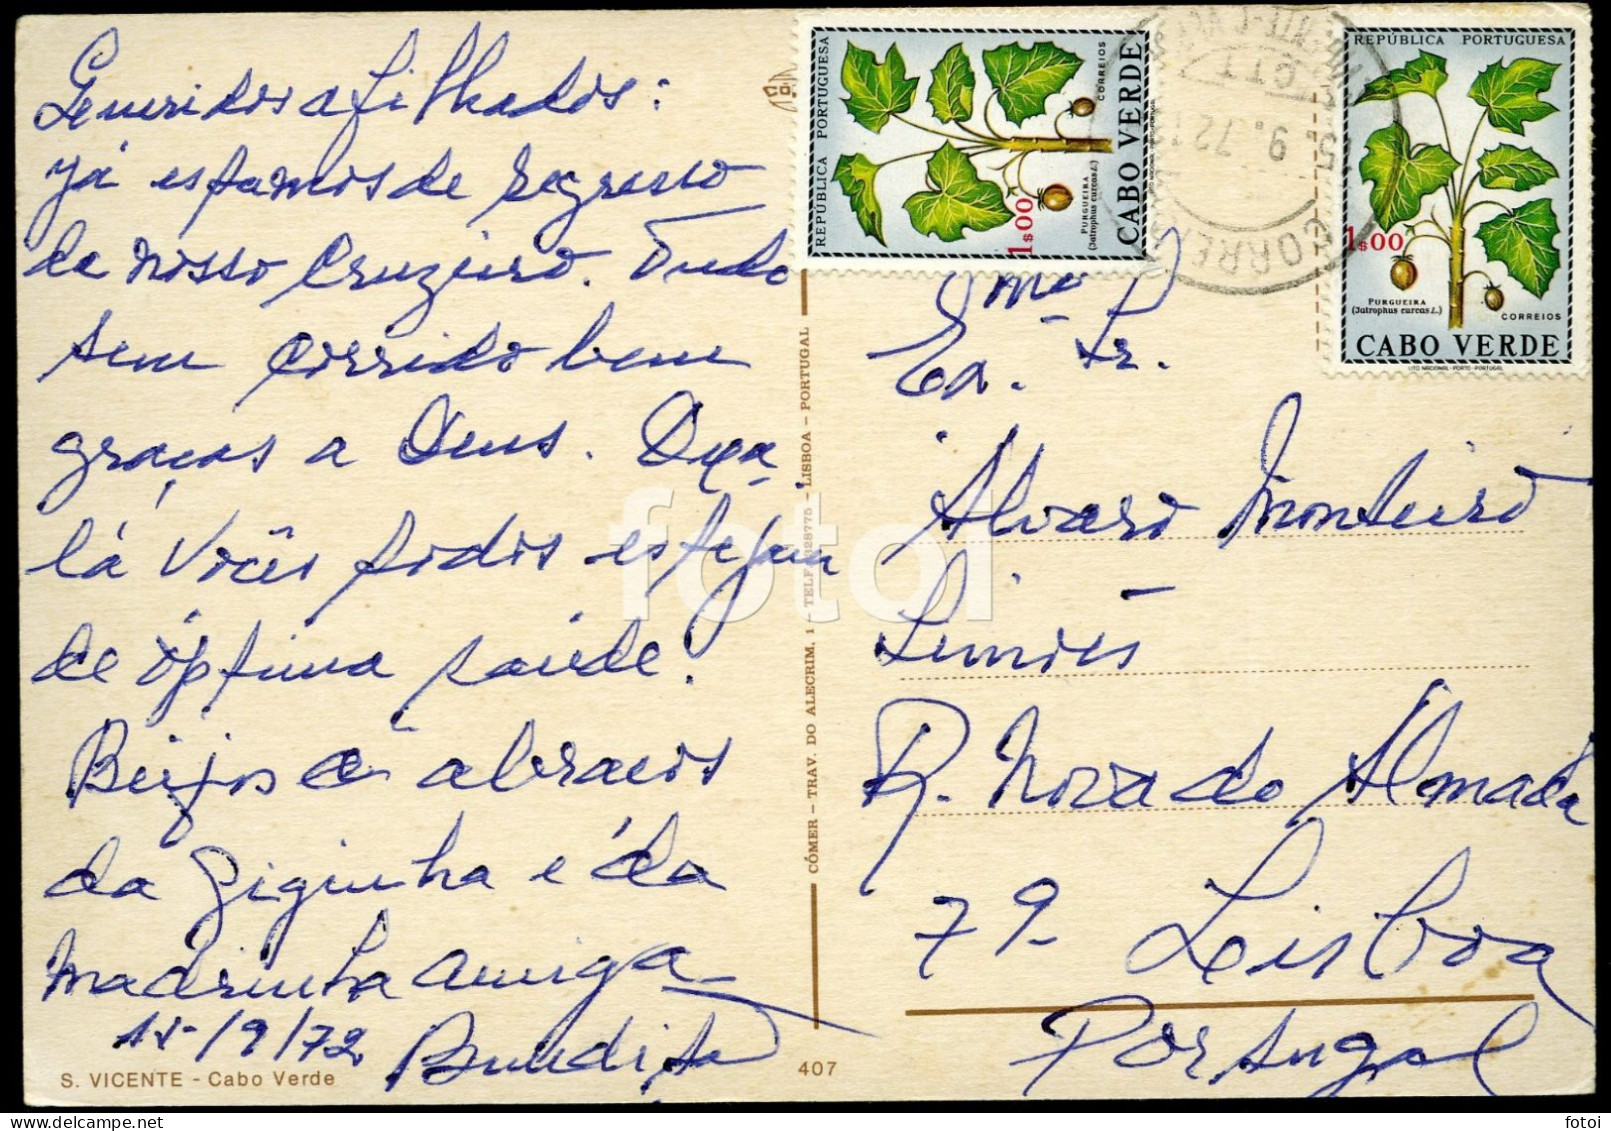 Queridos afilhados:
Já estamos de regresso
do nosso Cruzeiro. Tudo
tem corrido bem
graças a Deus. Oxa
lá vocês todos estejam
de óptima saúde.
Beijos e abraços
da Giginha e da
madrinha amiga
15/9/72
S. VICENTE - Cabo Verde
407
CÓMER - TRAV. DO ALECRIM, 1 - TELEF. 328775 - LISBOA - PORTUGAL
REPÚBLICA PORTUGUESA
CORREIOS
1$00
PURGUEIRA
(Jatrophus curcas L.)
CABO VERDE
LITO NACIONAL - PORTO - PORTUGAL
REPÚBLICA PORTUGUESA
1$00
PURGUEIRA
(Jatrophus curcas L.)
CORREIOS
CABO VERDE
LITO NACIONAL - PORTO - PORTUGAL
CTT
15. 9. 72
CORREIOS
Exmo.
Sr.
Alvaro Monteiro
Simões
R. Nova do Almada
79 Lisboa
Portugal
fotoi
fotoi